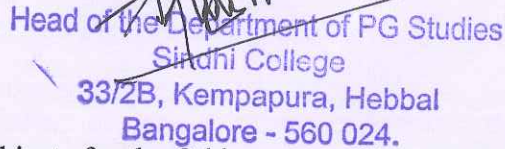 Head of the Department of PG Studies
Sindhi College
33/2B, Kempapura, Hebbal
Bangalore - 560 024.